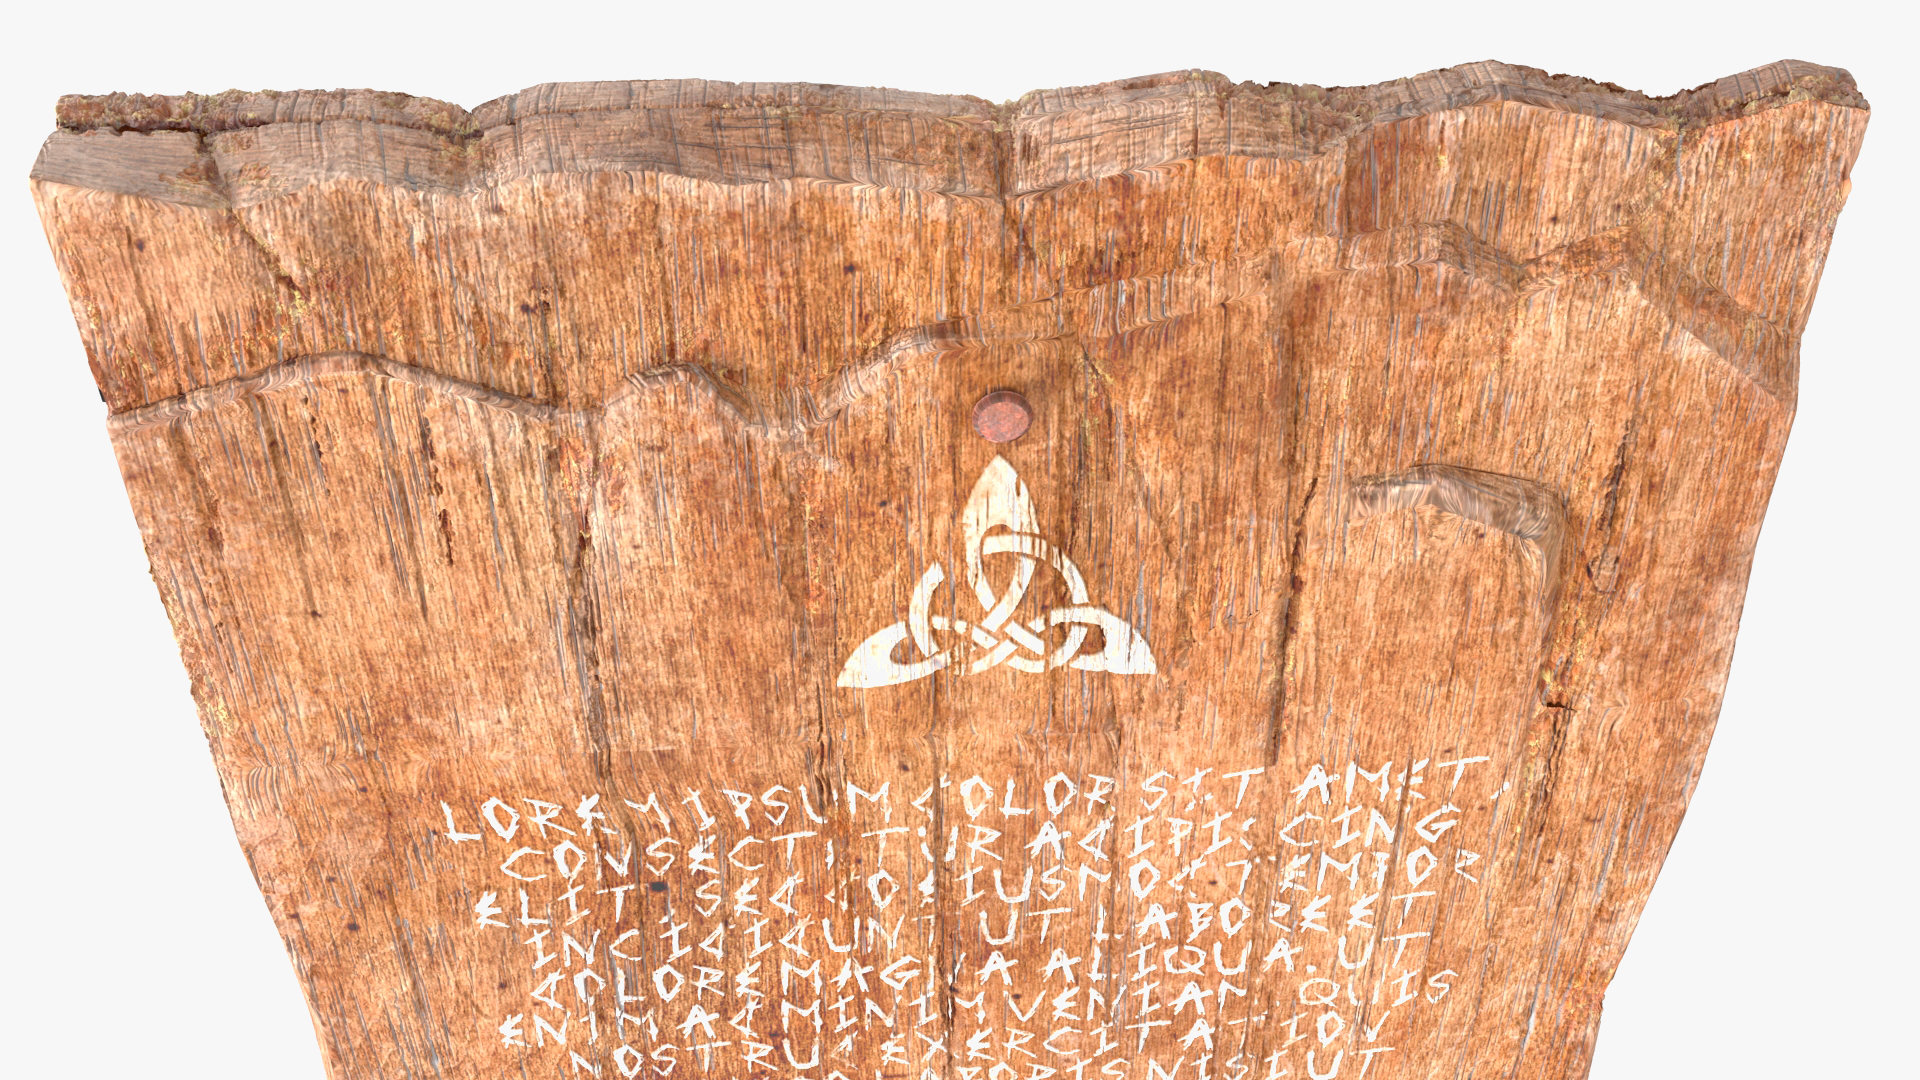 LOREM IPSUM DOLOR SIT AMET,
CONSECTETUR ADIPISCING
ELIT, SED DO EIUSMOD TEMPOR
INCIDIDUNT UT LABORE ET
DOLORE MAGNA ALIQUA. UT
ENIM AD MINIM VENIAM, QUIS
NOSTRUD EXERCITATION
LABORIS NISI UT